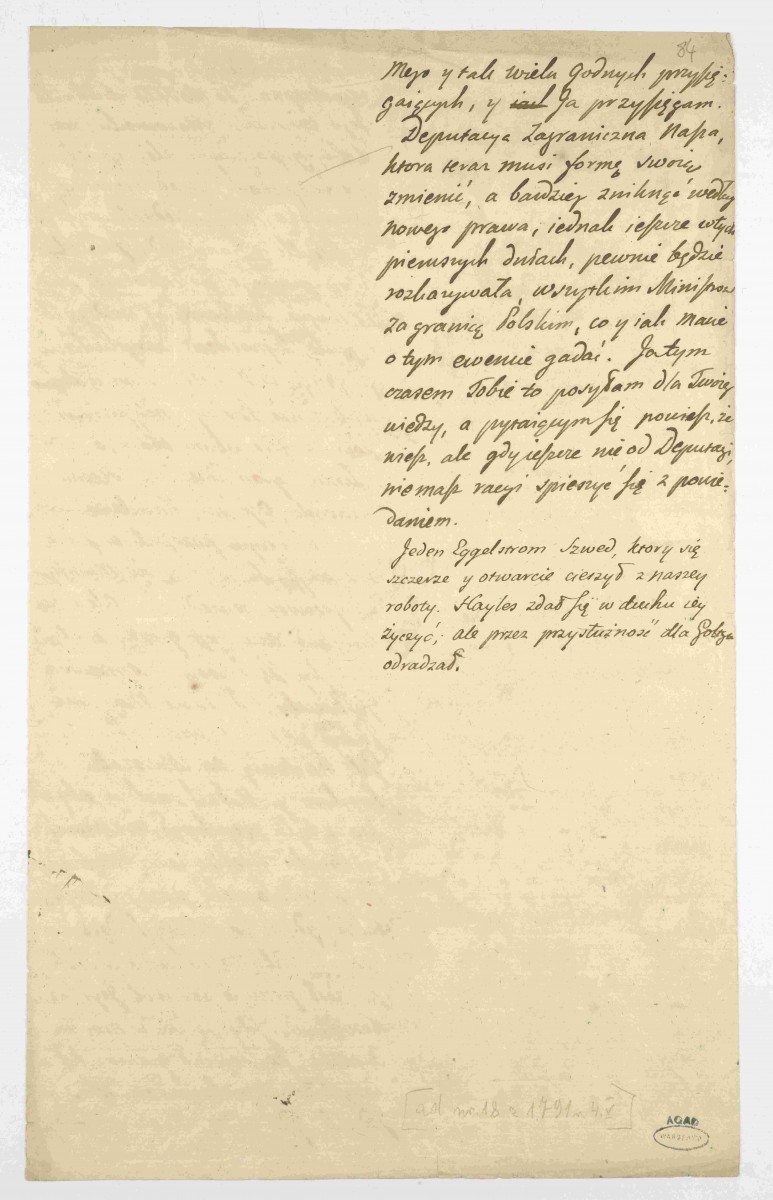 84
Mego y tak wielu Godnych przysię-
gaiących, y iak Ja przysięgam.
Deputacya Zagraniczna Nasza,
ktora teraz musi formę swoię
zmienić, a bardziey zniknąć według
nowego prawa, iednak ieszcze w tych
pierwszych dniach, pewnie będzie
rozkazywała, wszystkim Ministrom
za granicą Polskim, co y iak maią
o tym ewencie gadać. Ja tym
czasem Tobie to posyłam dla Twoiey
wiedzy, a pytaiącym się powiesz, że
wiesz, ale gdy ieszcze nie od Deputacyi,
nie masz racyi spieszyć się z powie-
daniem.
Jeden Eggelstrom Szwed, ktory się
szczerze y otwarcie cieszył z naszey
roboty. Hayles zdał się w duchu iey
życzyć, ale przez przysłużność dla Goltza
odradzał.
[ad nr 18 z 1791 r. 4.V]
AGAD
WARSZAWA